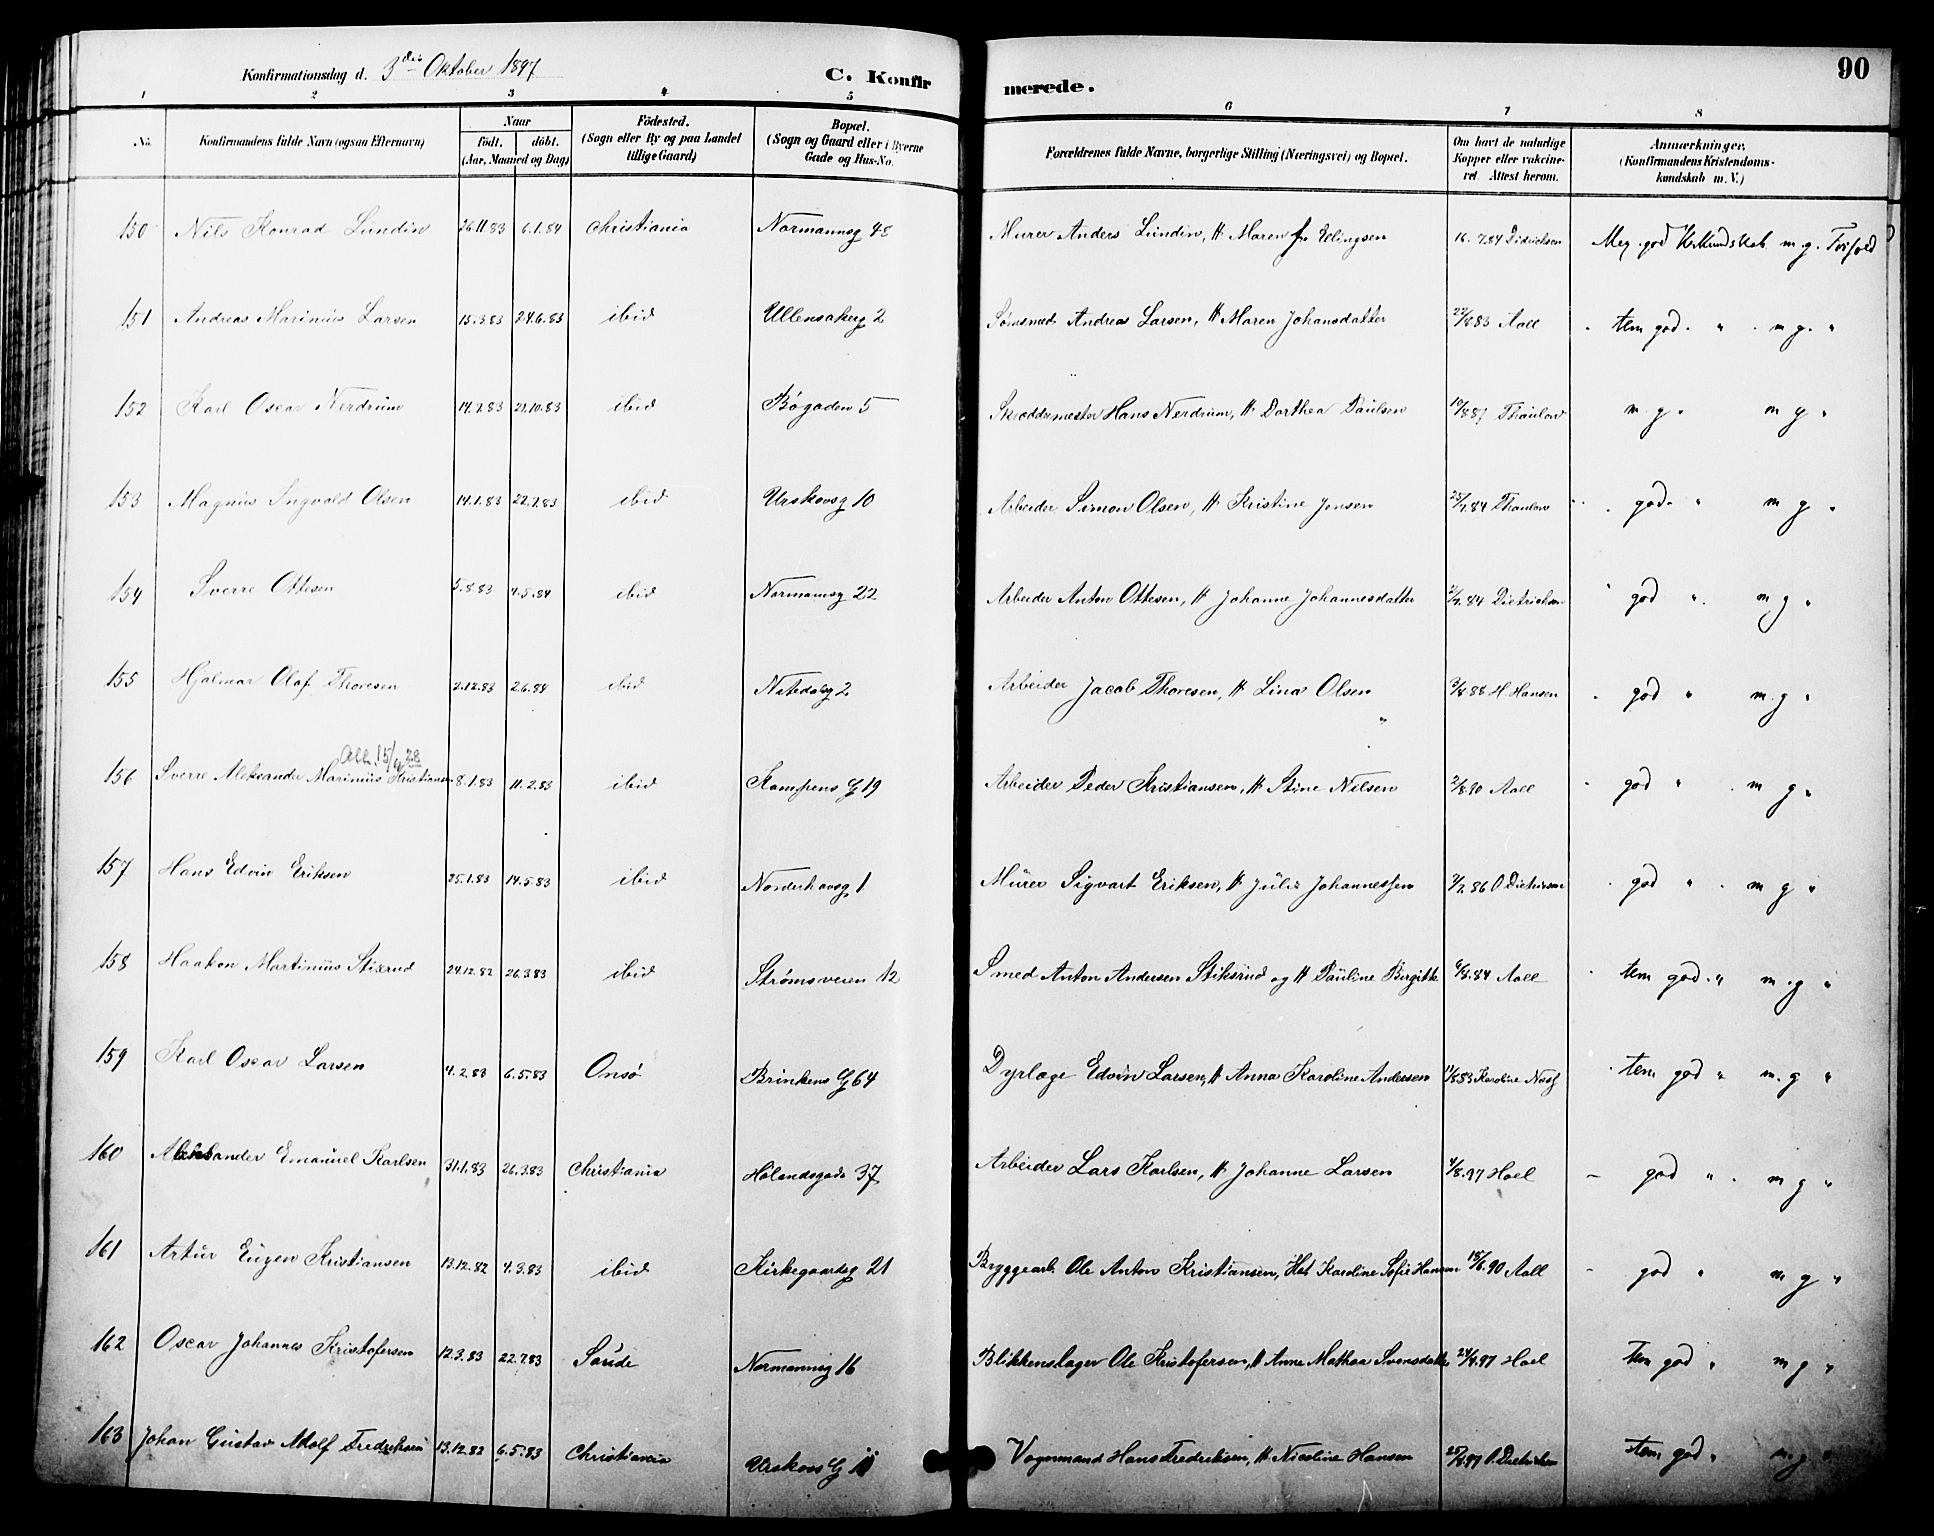 Konfirmationsdag d. 3die Oktober 1897 C. Konfirmerede. 90
1 2 3 4 5 6 7 8
No. Konfirmandens fulde Navn (ogsaa Efternavn) Naar födt. döbt. (Aar, Maaned og Dag) Födested. (Sogn eller By og paa Landet tillige Gaard) Bopæl. (Sogn og Gaard eller i Byerne Gade og Hus-No. Forældrenes fulde Navne, borgerlige Stilling (Næringsvei) og Bopæl. Om havt de naturlige Kopper eller vakcineret. Attest herom. Anmærkninger. (Konfirmandens Kristendomskundskab m. V.)
150 Nils Konrad Lundin 26.11.83 6.1.84 Christiania Normannsg 48 Murer Anders Lundin, H Maren f. Ellingsen 16.7.84 Didrichsen Meg. god Kr.Kundskab m. g. Forhold
151 Andreas Marinius Larsen 15.3.83 24.6.83 ibid Ullensakerg 2 Sømsmed Andreas Larsen, H Maren Johansdatter 22/8 83 Aall " tem god. " . m g. "
152 Karl Oscar Nerdrum 14.7.83 21.10.83 ibid Bøgaden 5 Skræddermester Hans Nerdrum, H Dorthea Paulsen 19/8 87 Thaulow m. g. " m g "
153 Magnus Ingvald Olsen 14.1.83 22.7.83 ibid Urskovsg 10 Arbeider Simon Olsen, H Kristine Jensen 25/7.84 Thaulow . god. " m g "
154 Sverre Ottesen 5.8.83 4.5.84 ibid Normannsg 22 Arbeider Anton Ottesen, H Johanne Johannesdatter 2/7.84 Dietrichson " god " m g "
155 Hjalmar Olaf Thoresen 2.12.83 2.6.84 ibid Nitedalsg 2 Arbeider Jacob Thoresen, H Lina Olsen 3/8.88 H. Hansen " god " m. g "
Att. 15/4 28
156 Sverre Aleksander Marinius Kristiansen 8.1.83 11.2.83 ibid Kampens G 19 Arbeider Peder Kristiansen, H Stine Nilsen 2/8.90 Aall " god " . m g "
157 Hans Edvin Eriksen 25.1.83 14.5.83 ibid Norderhovsg. 1 Murer Sigvart Eriksen, H Julie Johannessen 3/2.86 O. Dietrichson " god " . m g "
158 Haakon Martinius Stixrud 24.12.82 26.3.83 ibid Strømsveien 12 Smed Anton Andersen Stiksrud og H Pauline Birgitte 6/8.84 Aall " tem god. " m. g "
159 Karl Oscar Larsen 4.2.83 6.5.83 Onsø Brinkens G 64 Dyrlæge Edvin Larsen, H Anna Karoline Andersen 11/8 83 Karoline " tem god " m. g "
160 Aleksander Emanuel Karlsen 31.1.83 26.3.83 Christiania Hølandsgade 37 Arbeider Lars Karlsen, H Johanne Larsen 4/8.97 Hoel – god " . m g "
161 Artur Eugen Kristiansen 13.12.82 4.3.83 ibid Kirkegaardsg 21 Bryggearb. Ole Anton Kristiansen, Karoline Sofie Hansen 18/6.90 Aall – god " m g "
162 Oscar Johannes Kristofersen 12.3.83 22.7.83 Normannsg 16 Blikkenslager Ole Kristofersen, H Anne Mathea Svensdatter 24/8.97 Hoel tem god " m g "
163 Johan Gustav Adolf Fredriksen 13.12.82 6.5.83 Christiania Urskovs G 11 Vognmand Hans Fredriksen, H Nicoline Hansen 25/8.97 O. Dietrichson tem god " m. g "